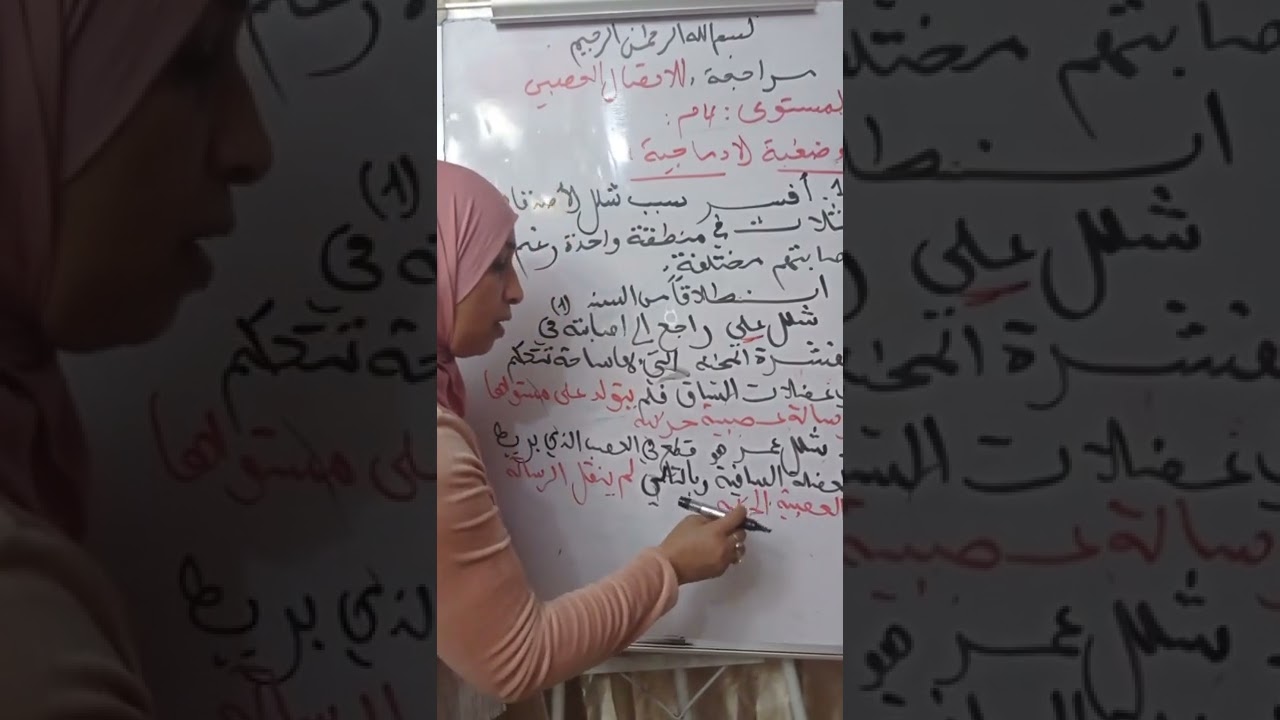 بسم الله الرحمن الرحيم
مراجعة للاتصال العصبي
المستوى: 4م:
وضعية الادماجية:
1. أفسر سبب شلل الأصدقاء
ثلاث في منطقة واحدة رغم
صابتهم مختلفة.
انطلاقاً من السند (1)
شلل علي راجع الى اصابته في
قشرة المخ التي بها ساحة تتحكم
في عضلات الساق فلم يتولد على مستواها
رسالة عصبية حركية
شلل عمر هو قطع في العصب الذي يربط
لعضلة الساقية وبالتالي لم ينقل الرسالة
العصبية الحركية